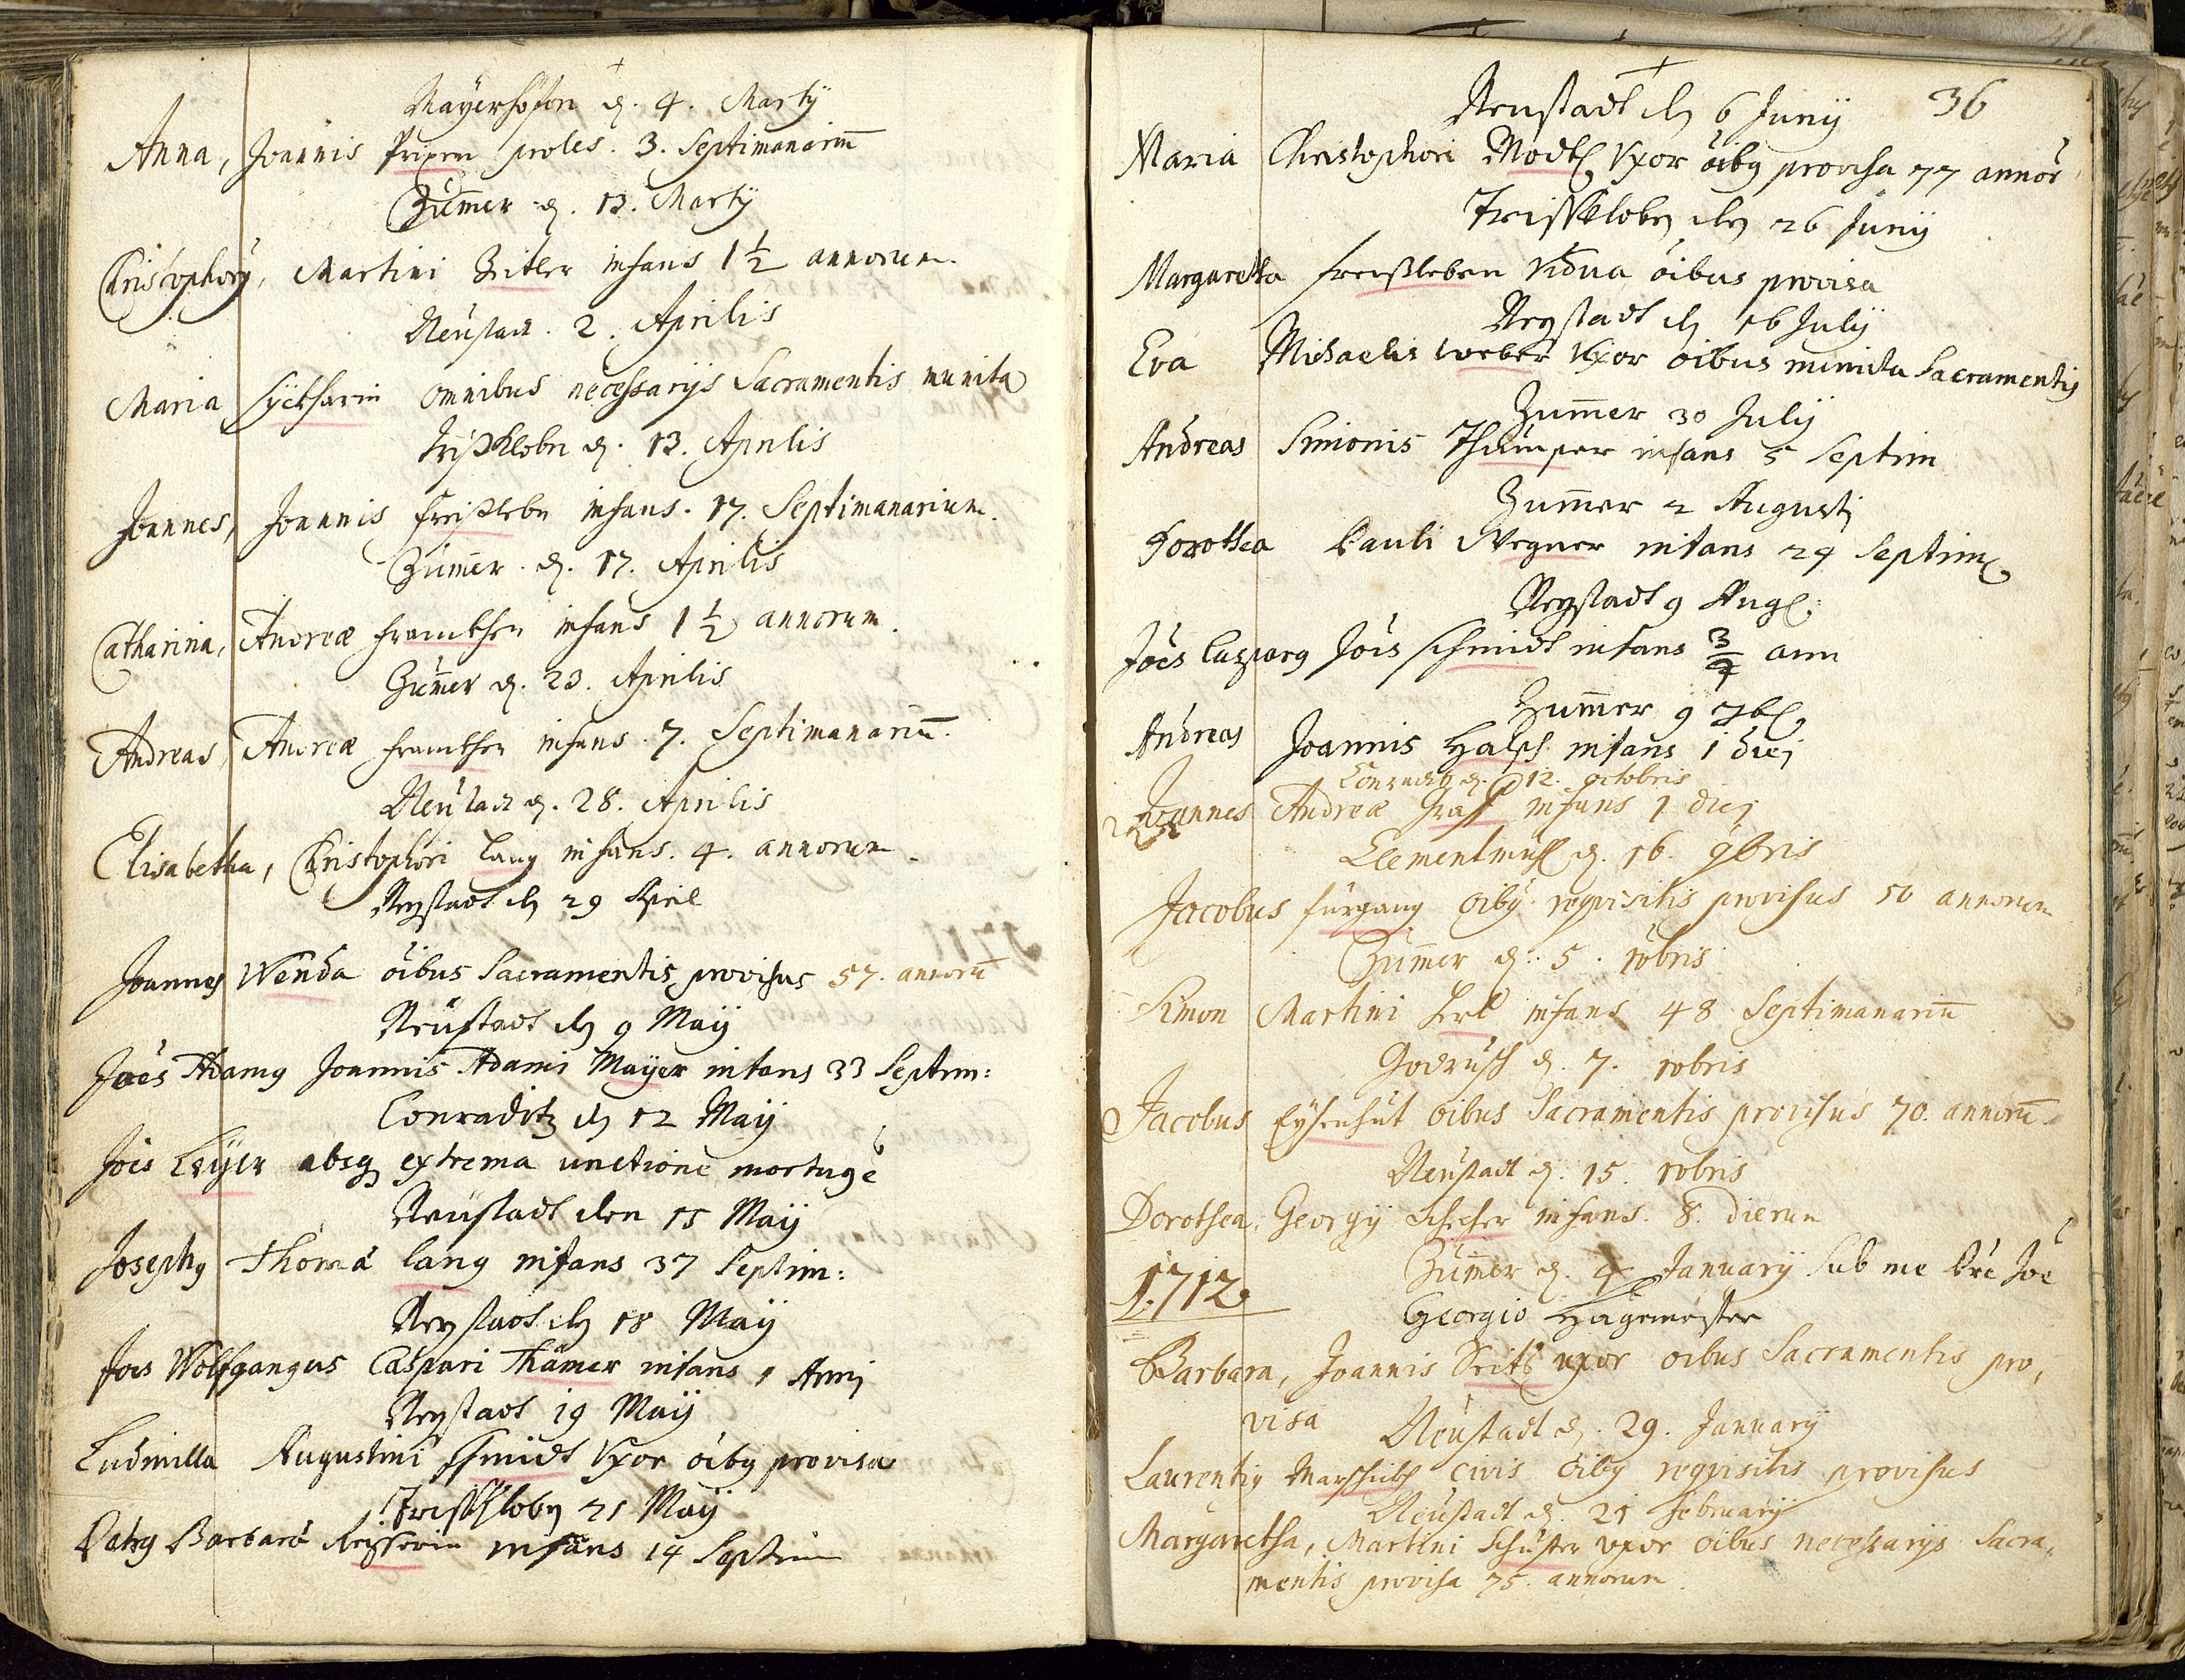 Mayerhöfen d. 4. Martÿ
Anna, Joannis Prixen proles. 3. Septimanariū
Zum̄er d. 13. Martÿ
Christophorÿ, Martini Zitler infans 1½ annorum.
Neüstadt. 2. Aprilis
Maria omnibus necessarÿs Sacramentis munita
d. 13. Aprilis
Joannes, Joannis freißlebn infans. 17. Septimanarium.
Zum̄er. d. 17. Aprilis
Catharina, Andreæ infans 1½ annorum.
Zum̄er d. 23. Aprilis
Andreas, Andreæ infans. 7. Septimanariū.
Neüstadt d. 28. Aprilis
Elisabetha, Christophori Lang infans. 4. annorum.
Neystadt dn 29 April
Joannes Wenda oibus Sacramentis provisus 57. annorū
Neustadt dn 9 Maÿ
Joes Adamy Joannis Adami Mayer infans 33 Septim:
Conraditz dn 12 Maÿ
Jois absq extrema unctione mortuq e
Neüstadt den 15 Maÿ
Josephq Thoma lang infans 37 Septim:
Neystadt dn 18 Maÿ
Joes Wolfgangus Caspari Thamer infans 1 Anni
Neystadt 19 Maÿ
Ludmilla Augustini schmidt Vxor oibq provisa
21 Maÿ
Petrq Barbara infans 14 Septim
36
Neustadt dn 6 Junÿ
Maria Christophori Modl Vxor oibq provisa 77 annor
dn 26 Junÿ
Margaretha freißleben Vidua oibus provisa
Neystadt dn 16 Julÿ
Eva Michaelis weber Vxor oibus munita Sacramentis
Zum̄er 30 Julÿ
Andreas Simonis infans 5 Septim
Zum̄er 2 Augusti
Dorothea Pauli Wegner infans 24 Septim
Neystadt 9 Aug:
Joes Casparq Jois schmidt infans ¾ ann
Zum̄er 9 7b
Andreas Joannis infans 1 diei
Conraditz d. 12. octobris
Joannes Andreæ Graf infans 1 diei
Clementmühl d. 16. 9bris
Jacobus fürgang oibq reqvisitis provisus 50 annorum
Zum̄er d. 5. xobris
Simon Martini infans 48 Septimanariū
Godrusch d. 7. xobris
Jacobus Eÿsenhut oibus Sacramentis provisus 70. annorū.
Neustadt d. 15. xobris
Dorothea, Georgÿ infans. 8. dierum
1712
Zum̄er d. 4 Januarÿ sub me Pre Joe
Georgio Hagemeister
Barbara, Joannis vxor oibus Sacramentis pro,
visa
Neüstadt d. 29. Januarÿ
Laurentiq civis oibq reqvisitis provisus
Neüstadt d. 21 februarÿ
Margaretha, Martini Schuster vxor oibus necessarÿs Sacra,
mentis provisa 75. annorum.